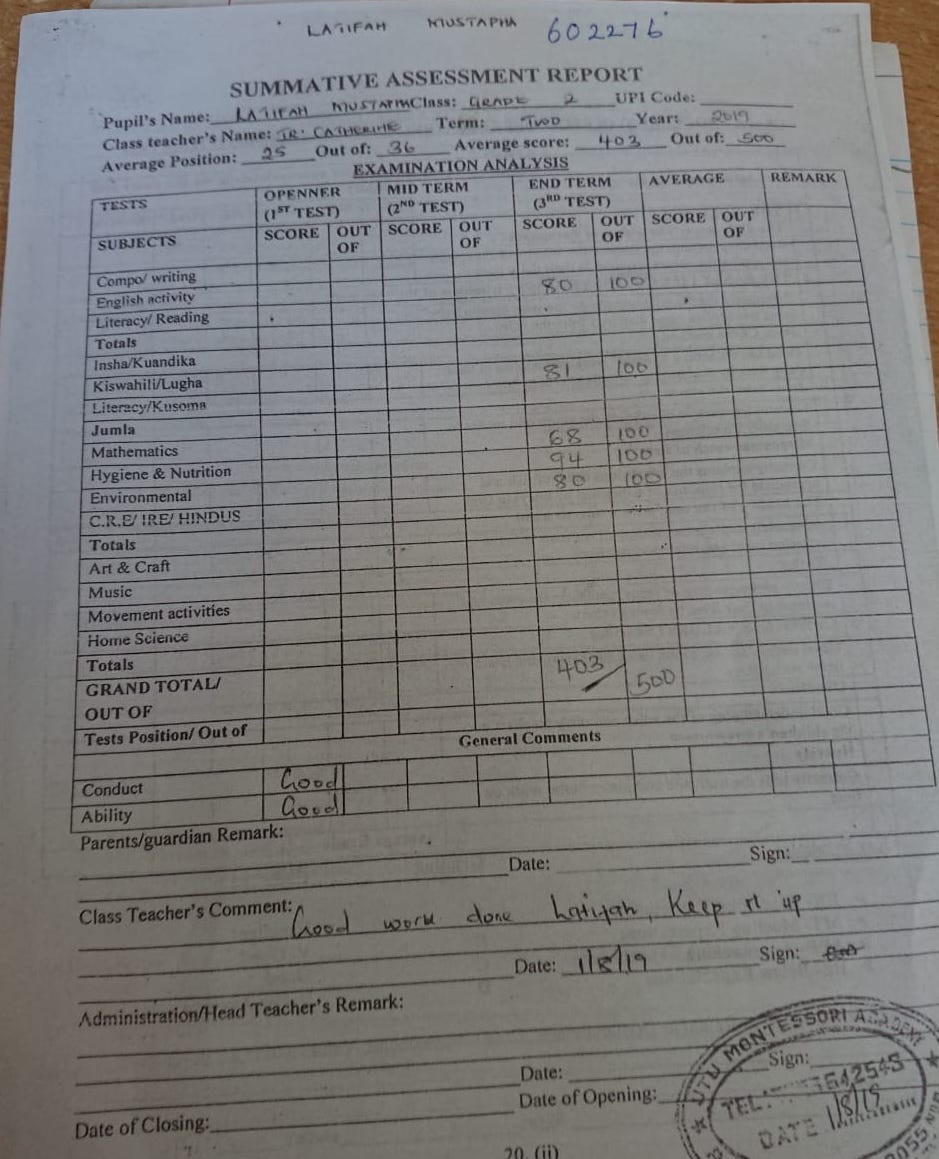 LATIFAH MUSTAPHA 602276
SUMMATIVE ASSESSMENT REPORT
Pupil's Name: LATIFAH MUSTAPHA Class: GRADE 2 UPI Code:
Class teacher's Name: TR. CATHERINE Term: TWO Year: 2019
Average Position: 25 Out of: 36 Average score: 403 Out of: 500
EXAMINATION ANALYSIS
TESTS OPENNER (1ST TEST) MID TERM (2ND TEST) END TERM (3RD TEST) AVERAGE REMARK
SUBJECTS SCORE OUT OF SCORE OUT OF SCORE OUT OF SCORE OUT OF
Compo/ writing
English activity 80 100
Literacy/ Reading
Totals
Insha/Kuandika
Kiswahili/Lugha 81 100
Literacy/Kusoma
Jumla
Mathematics 68 100
Hygiene & Nutrition 94 100
Environmental 80 100
C.R.E/ IRE/ HINDUS
Totals
Art & Craft
Music
Movement activities
Home Science
Totals
GRAND TOTAL/ 403 500
OUT OF
Tests Position/ Out of
General Comments
Conduct Good
Ability Good
Parents/guardian Remark:
Date: Sign:
Class Teacher's Comment: Good work done Latifah, Keep it up
Date: 1/8/19 Sign:
Administration/Head Teacher's Remark:
Date: Sign:
Date of Closing: Date of Opening:
UTU MONTESSORI ACADEMY
TEL:
DATE 1/8/19
20. (ii)